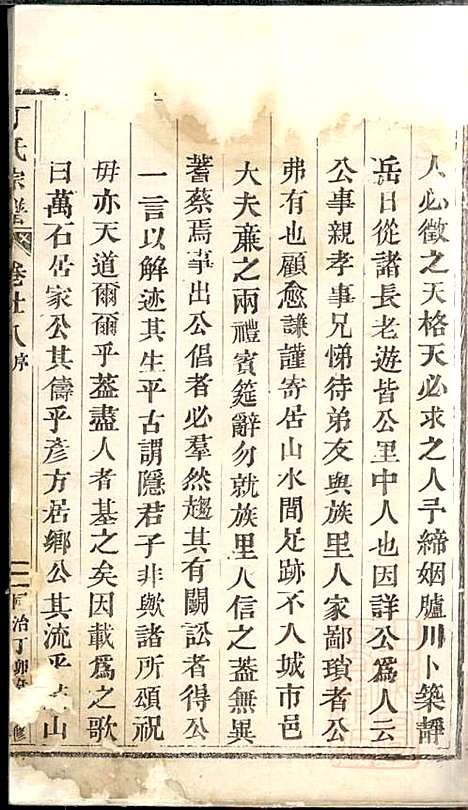 人必徵之天格天必求之人予締姻臚川卜築靜
岳日從諸長老遊皆公里中人也因詳公為人云
公事親孝事兄悌待弟友與族里人家鄙瑣者公
弗有也顧愈謙謹寄居山水間足跡不入城市邑
大夫亷之兩禮賓筵辭勿就族里人信之葢無異
蓍蔡焉事出公倡者必羣然趨其有鬭訟者得公
一言以解迹其生平古謂隱君子非歟諸所頌祝
毋亦天道爾爾乎葢盡人者基之矣因載為之歌
曰萬石居家公其儔乎彥方居鄉公其流乎山
丁氏宗譜
卷廿八
序
一
同治丁卯年
修